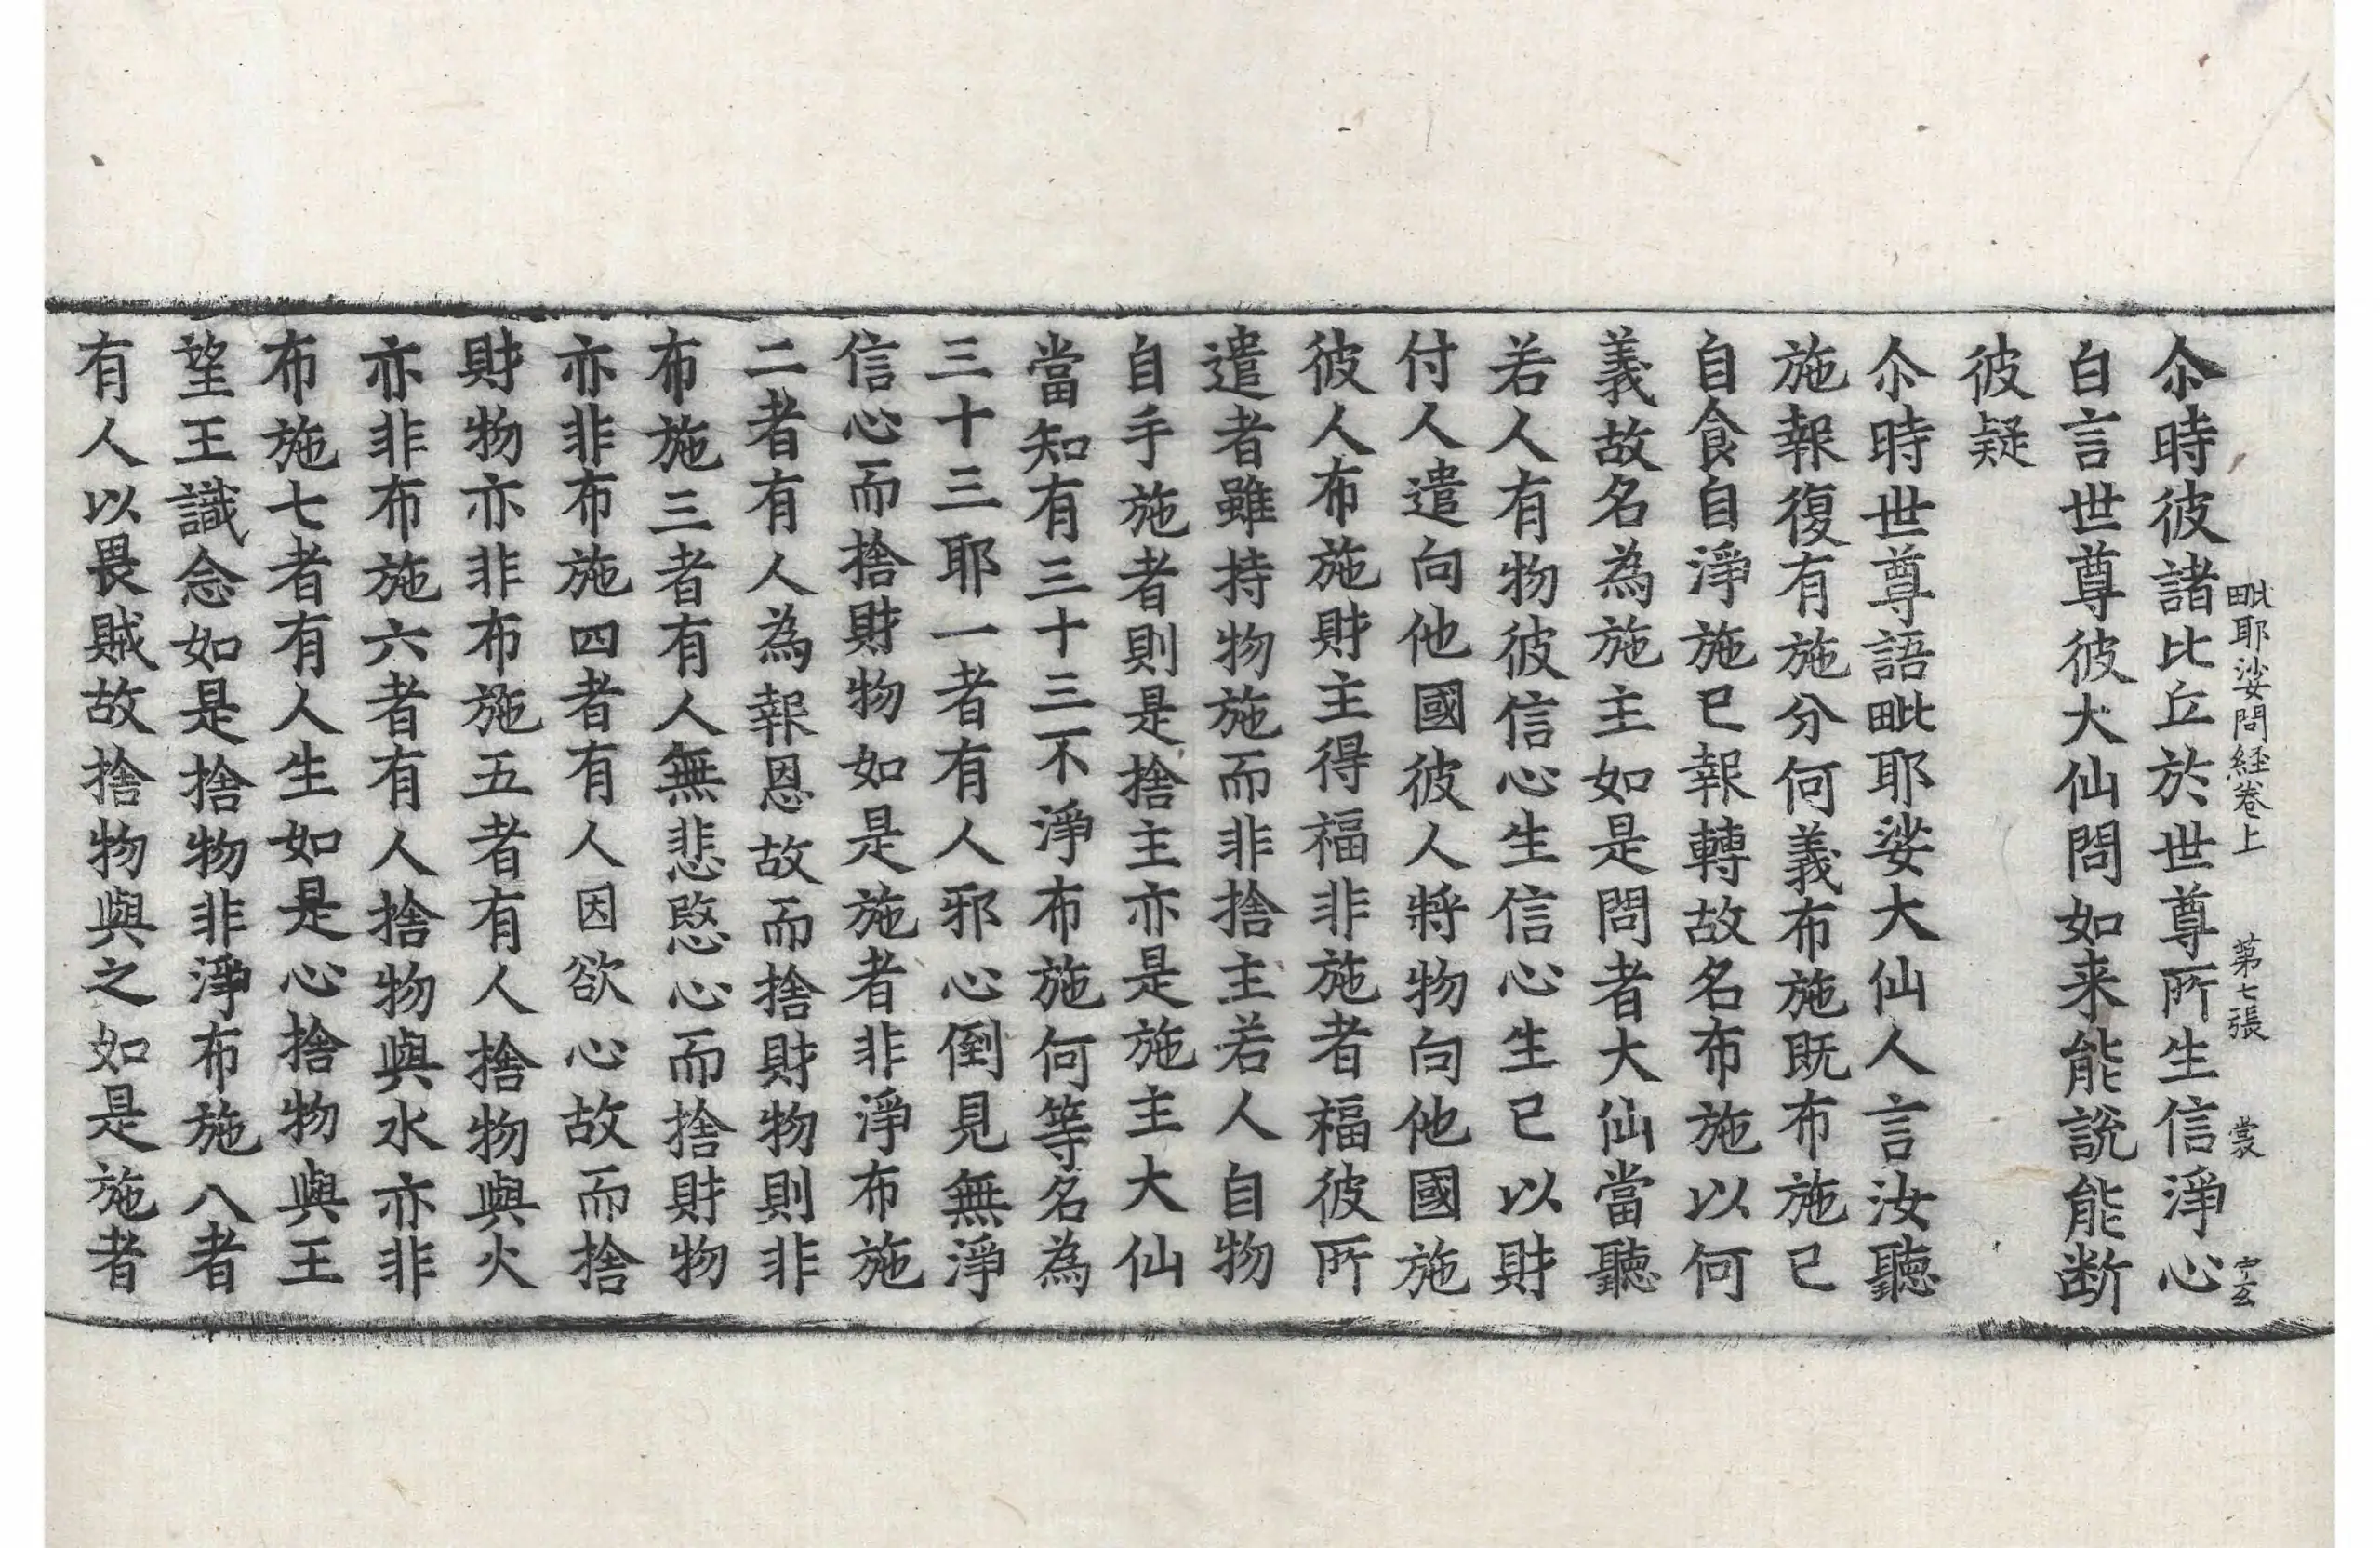 毗耶娑問経卷上 第七張 裳 守玄
尒時彼諸比丘於世尊所生信淨心
白言世尊彼大仙問如来能說能断
彼疑
尒時世尊語毗耶娑大仙人言汝聽
施報復有施分何義布施既布施已
自食自淨施已報轉故名布施以何
義故名為施主如是問者大仙當聽
若人有物彼信心生信心生已以財
付人遣向他國彼人將物向他國施
彼人布施財主得福非施者福彼所
遣者雖持物施而非捨主若人自物
自手施者則是捨主亦是施主大仙
當知有三十三不淨布施何等名為
三十三耶一者有人邪心倒見無淨
信心而捨財物如是施者非淨布施
二者有人為報恩故而捨財物則非
布施三者有人無悲愍心而捨財物
亦非布施四者有人因欲心故而捨
財物亦非布施五者有人捨物與火
亦非布施六者有人捨物與水亦非
布施七者有人生如是心捨物與王
望王識念如是捨物非淨布施八者
有人以畏賊故捨物與之如是施者